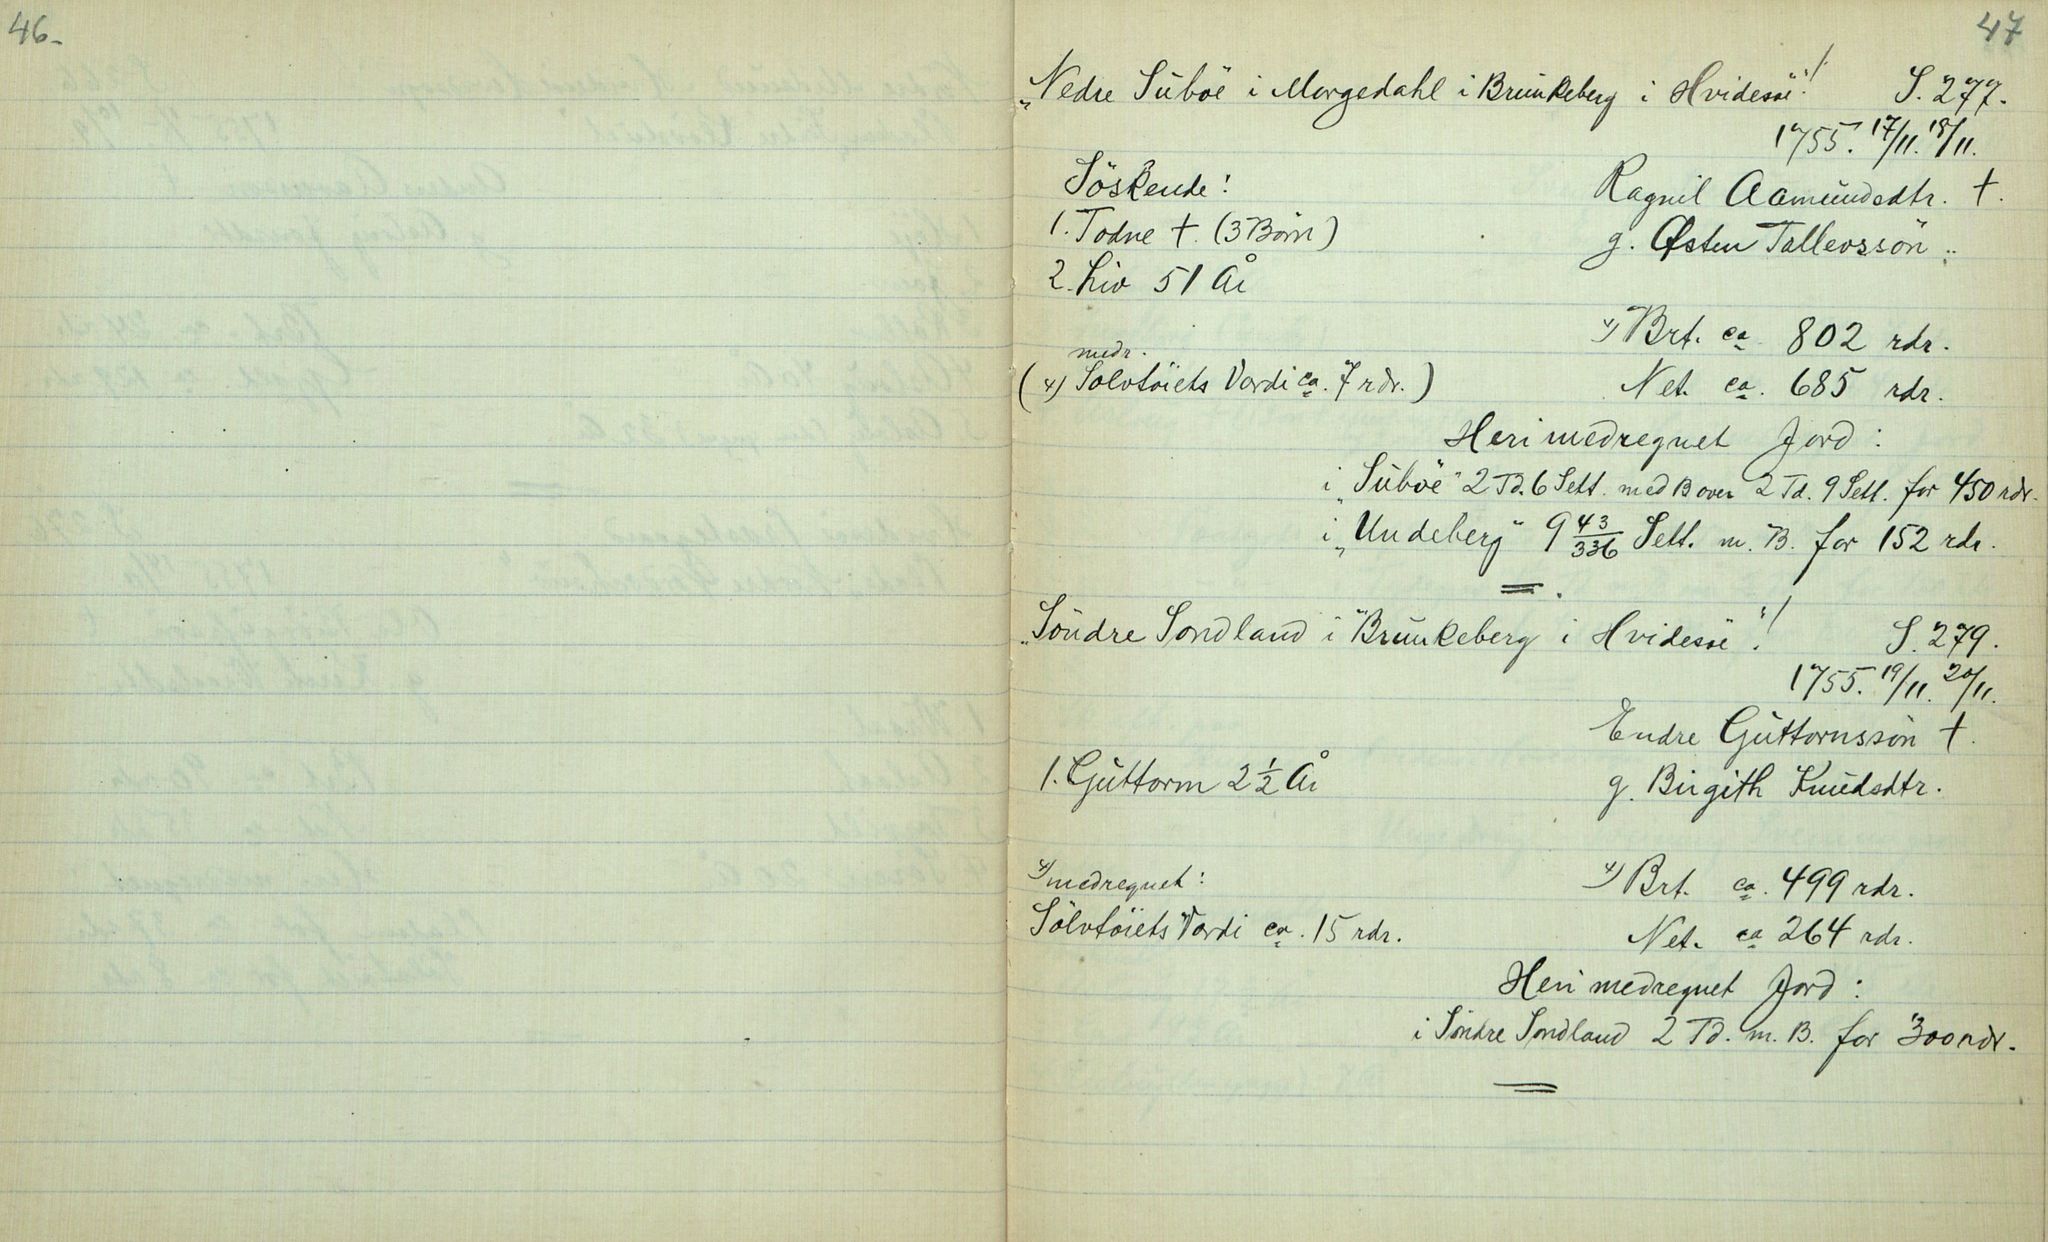 46-
47
"Nedre Suböe i Morgedahl i Brunkeberg i Hvidesöe"! S. 277.
1755. 17/11. 18/11.
Söskende: Ragnil Aamundsdtr. †.
1. Todne †. (3 Börn) g. Østen Tallevssön ..
2. Liv 51 År
×) Brt. ca. 802 rdr.
medr.
(×) Sölvtöiets Værdi ca. 7 rdr.) Net. ca. 685 rdr.
Heri medregnet Jord:
i "Suböe" 2 Td. 6 Sett. med B over 2 Td. 9 Sett. for 450 rdr.
i "Undeberg" 9 43/336 Sett. m. B. for 152 rdr.
"Söndre Sondland i Brunkeberg i Hvidesöe"! S. 279.
1755. 19/11. 20/11.
Endre Guttormssön †.
1. Guttorm 2 1/2 År g. Birgith Knudsdtr.
×) medregnet: ×) Brt. ca. 499 rdr.
Sölvtöiets Værdi ca. 15 rdr. Net. ca 264 rdr.
Heri medregnet Jord:
i Söndre Sondland 2 Td. m. B. for 300 rdr.